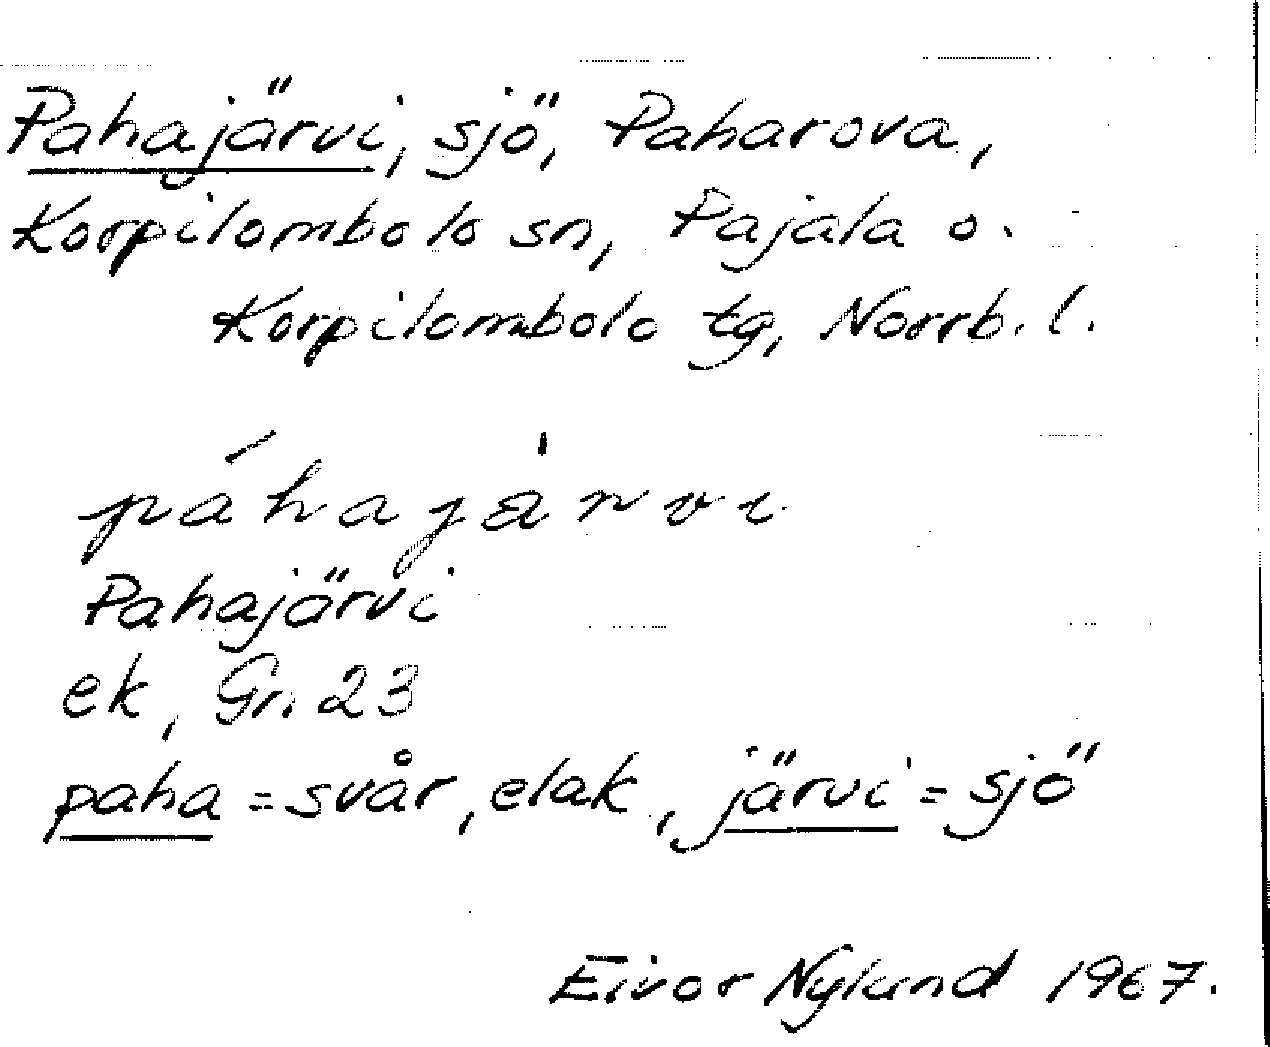 Pahajärvi, sjö, Paharova,
Korpilombolo sn, Pajala o.
Korpilombolo tg, Norrb. l.
páhajä̀rvi
Pahajärvi
ek, Gr. 23
paha = svår, elak, järvi = sjö
Eivor Nylund 1967.